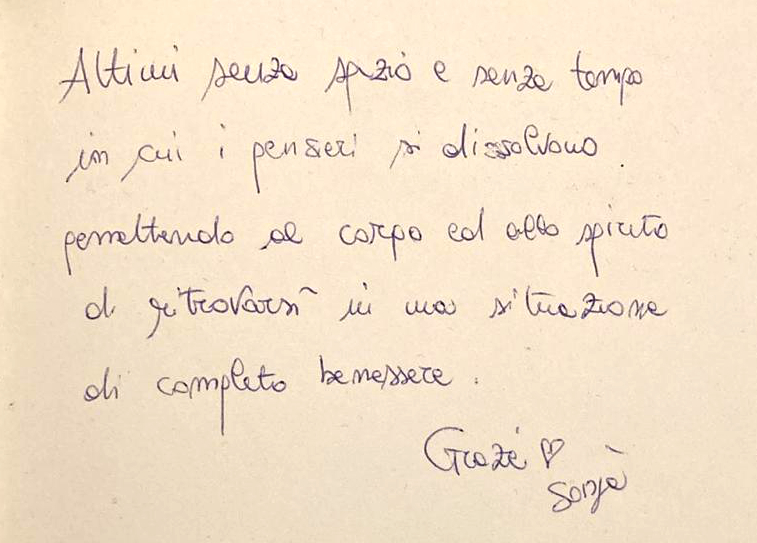 Attimi senza spazio e senza tempo
in cui i pensieri si dissolvono.
permettendo al corpo ed allo spirito
di ritrovarsi in una situazione
di completo benessere.
Grazie ♡
Sonja